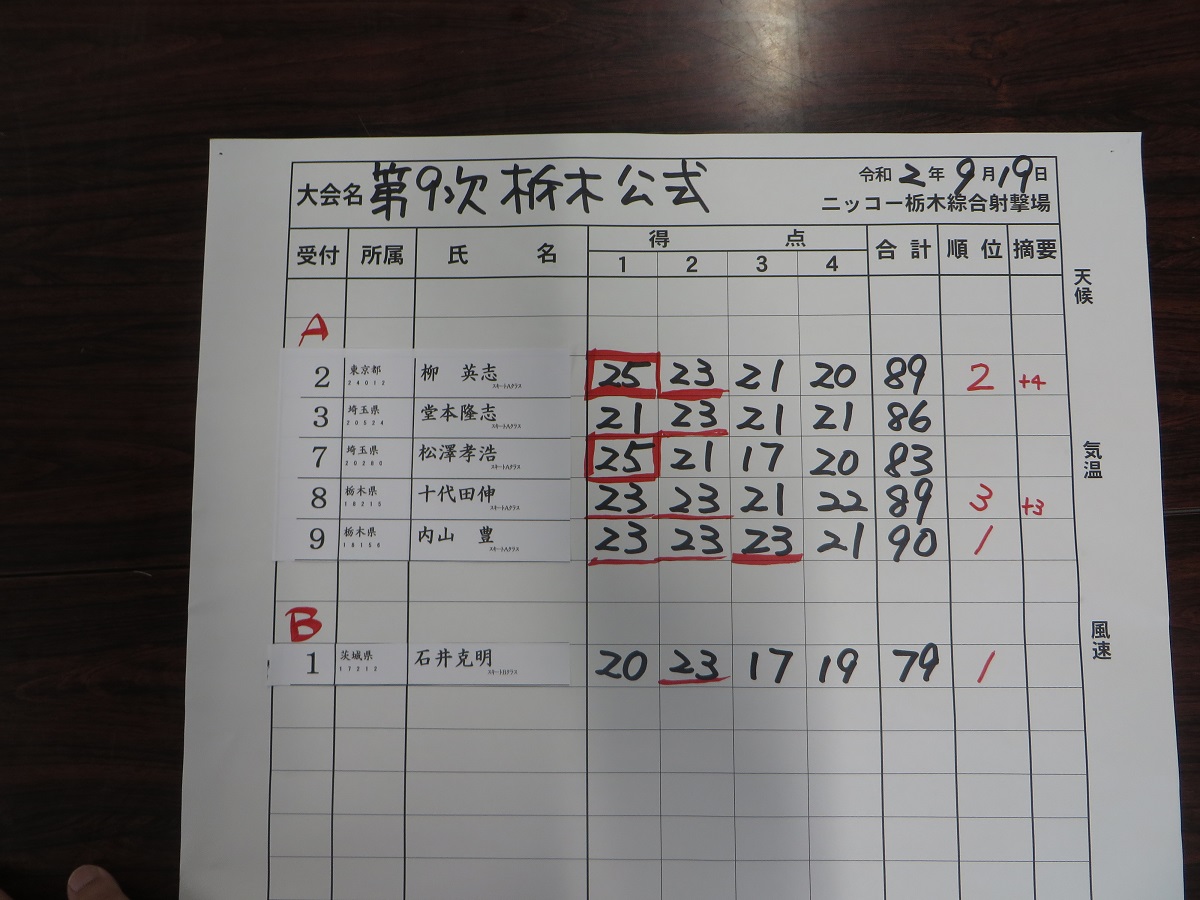 大会名 第9次 栃木公式 令和2年9月19日
ニッコー栃木綜合射撃場
受付 所属 氏 名 得 点 合計 順位 摘要
1 2 3 4
天候
A
2 東京都 柳 英志 25 23 21 20 89 2 +4
24012 スキートAクラス
3 埼玉県 堂本隆志 21 23 21 21 86
20524 スキートAクラス
気温
7 埼玉県 松澤孝浩 25 21 17 20 83
20280 スキートAクラス
8 栃木県 十代田伸 23 23 21 22 89 3 +3
18215 スキートAクラス
9 栃木県 内山 豊 23 23 23 21 90 1
18158 スキートAクラス
B
風速
1 茨城県 石井克明 20 23 17 19 79 1
17212 スキートBクラス